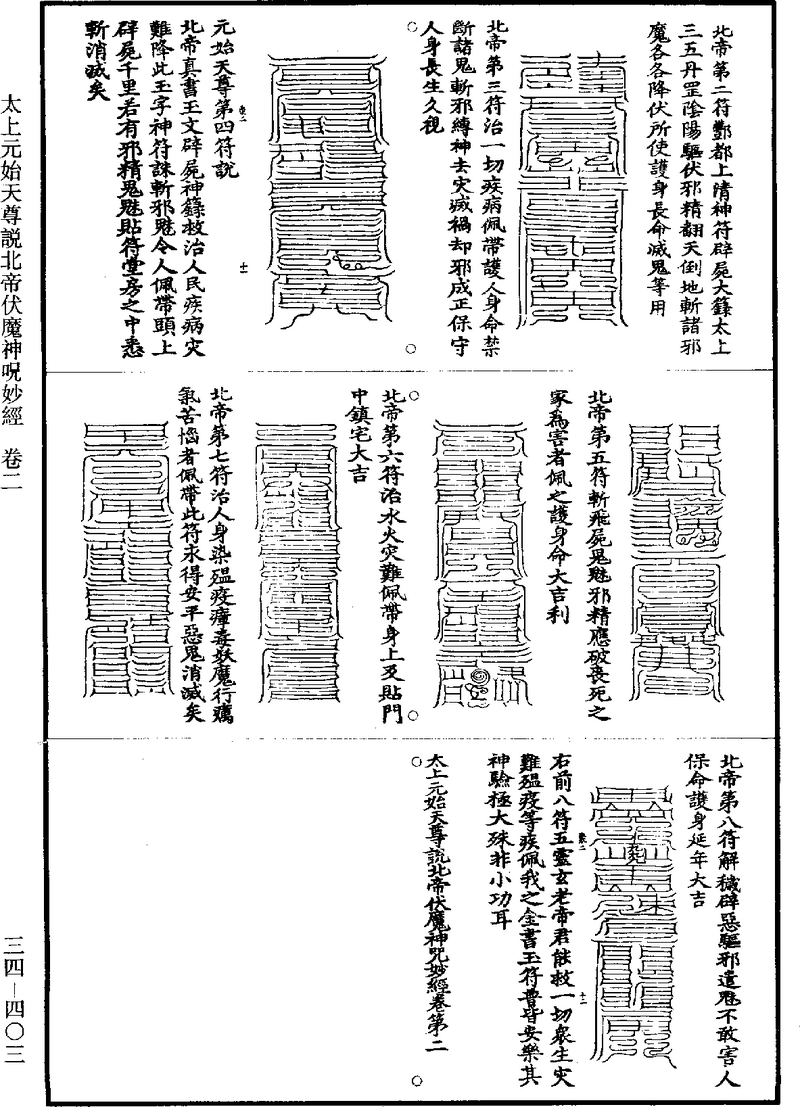 北帝第二符酆都上清神符辟屍大籙太上
三五丹罡陰陽驅伏邪精翻天倒地斬諸邪
魔各各降伏所使護身長命滅鬼等用
北帝第三符治一切疾病佩帶護人身命禁
斷諸鬼斬邪縛神去灾滅禍却邪成正保守
人身長生久視
元始天尊第四符說
北帝真書玉文辟屍神籙救治人民疾病灾
難降此玉字神符誅斬邪魅令人佩帶頭上
辟屍千里若有邪精鬼魅貼符堂房之中悉
斬消滅矣
北帝第五符斬飛屍鬼魅邪精應破喪死之
家為害者佩之護身命大吉利
北帝第六符治水火灾難佩帶身上及貼門
中鎮宅大吉
北帝第七符治人身染瘟疫瘴毒妖魔行癘
氣苦惱者佩帶此符永得安平惡鬼消滅矣
北帝第八符解穢辟惡驅邪遣魅不敢害人
保命護身延年大吉
右前八符五靈玄老帝君能救一切衆生灾
難瘟疫等疾佩我之金書玉符普皆安樂其
神驗極大殊非小功耳
太上元始天尊說北帝伏魔神呪妙經卷第二
太上元始天尊説北帝伏魔神呪妙經 卷二
三四－四〇三